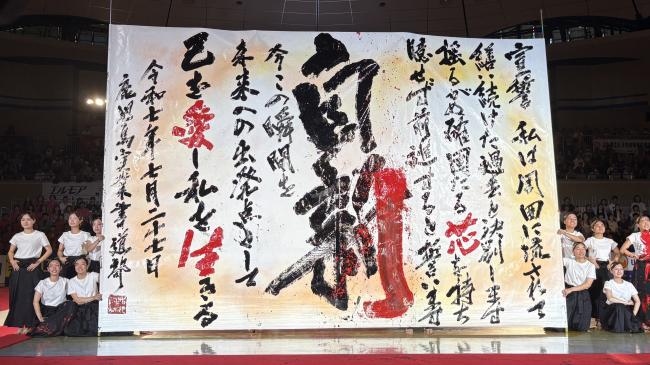 宣誓 私は周囲に流されて
繕い続けた過去と決別します
揺るがぬ確固たる芯を持ち
臆せず前進すると誓います
自新
今この瞬間を
未来への出発点として
己を愛し私を生きる
令和七年七月二十七日
鹿児島実業書道部
エルモア